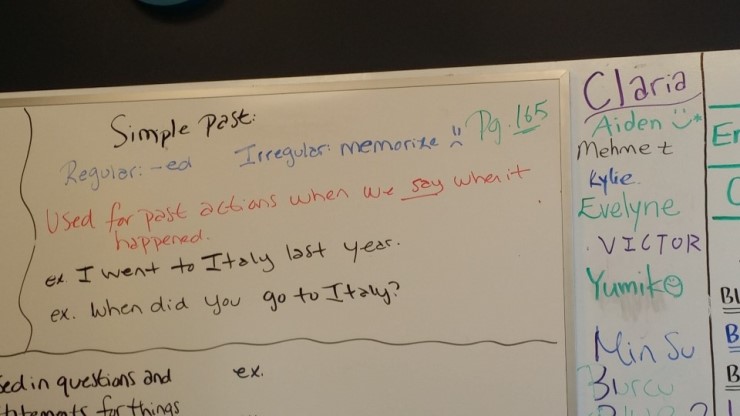 Simple Past:
Regular: -ed Irregular: memorize Pg. 165
Used for past actions when we say when it
happened.
ex I went to Italy last year.
ex. When did you go to Italy?
in questions and ex.
for things
Claria
Aiden
Mehmet
Kylie
Evelyne
VICTOR
Yumiko
Min Su
Burcu